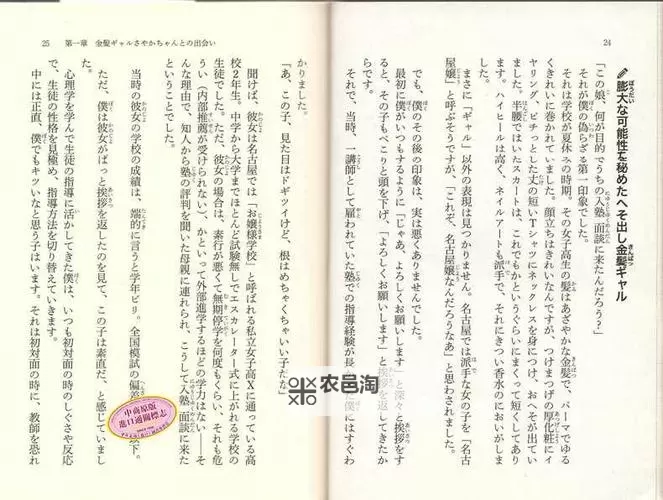 24
膨大な可能性を秘めたへそ出し金髪ギャル
「この娘、何が目的でうちの入塾面談に来たんだろう？」
それが僕の偽らざる第一印象でした。
それは学校が夏休みの時期。その女子高生の髪はあざやかな金髪で、パーマでゆる
くきれいに巻かれていました。顔立ちはきれいなんですが、つけまつげの厚化粧にイ
ヤリング、ピチっとした丈の短いＴシャツにネックレスを身につけ、おへそが出てい
ました。半腰ではいたスカートは、これでもかというくらいにまくって短くしてあり
ます。ハイヒールは高く、ネイルアートも派手で、それにきつい香水のにおいがしま
す。
まさに「ギャル」以外の表現は見つかりません。名古屋では派手な女の子を「名古
屋嬢」と呼ぶそうですが、「これぞ、名古屋嬢なんだろうなあ」と思わされました。
でも、僕のその後の印象は、実は悪くありませんでした。
最初に僕がいつもするように「じゃあ、よろしくお願いします」と深々と挨拶をす
ると、その子もぺこりと頭を下げ、「よろしくお願いします」と挨拶を返してきたか
らです。
それで、当時、一講師として雇われていた塾での指導経験が長 僕にはすぐわ
25 第一章 金髪ギャルさやかちゃんとの出会い
かりました。
「あ、この子、見た目はドギツイけど、根はめちゃくちゃいい子だな」
聞けば、彼女は名古屋では「お嬢様学校」と呼ばれる私立女子高Ｘに通っている高
校２年生。中学から大学までほとんど試験無しでエスカレーター式に上がれる学校の
生徒でした。ただ、彼女の場合は、素行が悪くて無期停学を何度もくらい、それも危
うい（内部推薦が受けられない）、かといって外部進学するほどの学力はない――そ
んな理由で、知人から塾の評判を聞いた母親に連れられ、こうして入塾面談に来た
ということでした。
当時の彼女の学校の成績は、端的に言うと学年ビリ。全国模試の偏差 下。
ただ、僕は彼女がぱっと挨拶を返したのを見て、この子は素直だ、と感じていまし
た。
心理学を学んで生徒の指導に活かしてきた僕は、いつも初対面の時のしぐさや反応
で、生徒の性格を見極め、指導方法を切り替えていきます。
中には正直、僕でもキツいなと思う子はいます。それは初対面の時に、教師を恐れ
农邑淘
中商原版
進口通關標志